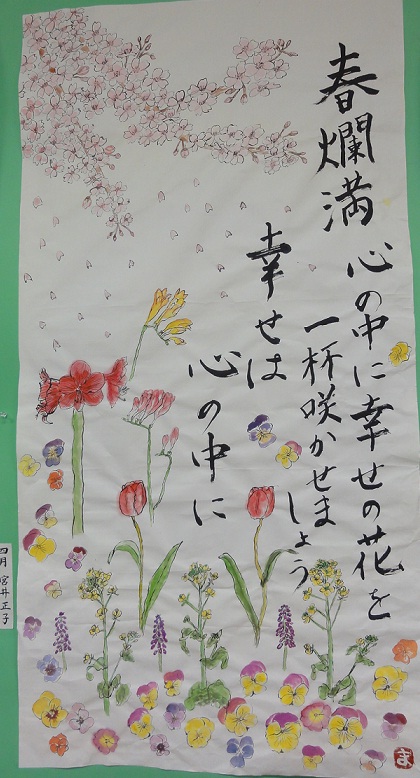 春爛満
心の中に幸せの花を
一杯咲かせましょう
幸せは
心の中に
四月 宮井正子
ま